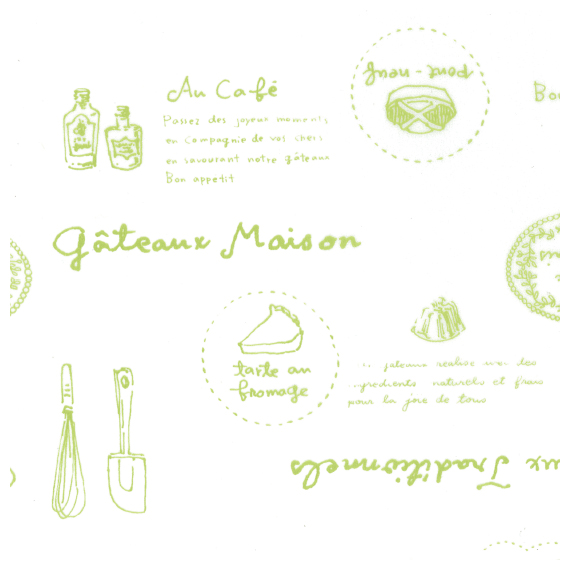 Au Café
Passez des joyeux moments
en compagnie de vos chers
en savourant notre gâteaux
Bon appetit
pont-neuf
Bo
Gâteaux Maison
tarte au
fromage
gateaux réalisé avec des
ingredients naturels et frais
pour la joie de tous
ux Traditionnels